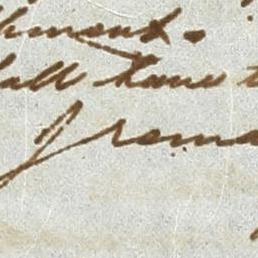 hment.
all have t
I rema